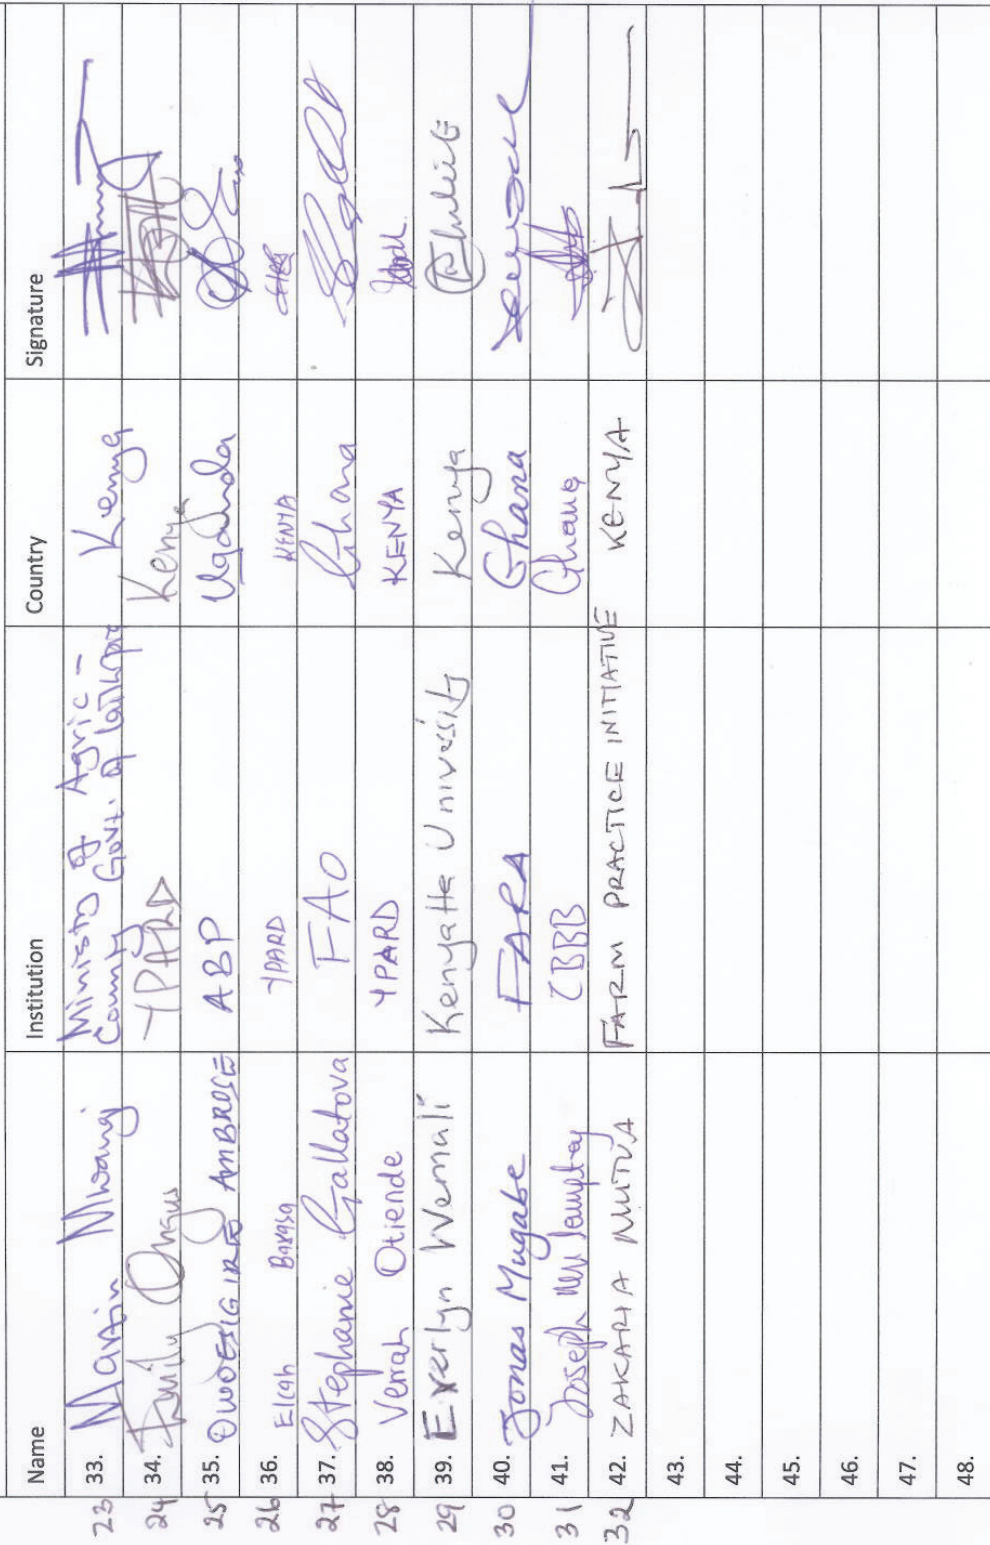 Name Institution Country Signature
23 33. Martin Mwangi Ministry of Agric -
County Govt. of Kenya
24 34. Emily YPARD Kenya
25 35. OWOESIGIRE AMBROSE ABP Uganda
26 36. Elcah Barasa YPARD KENYA
27 37. Stephanie Gallatova FAO Ghana
28 38. Verrah Otiende YPARD KENYA
29 39. Everlyn Wemali Kenyatta University Kenya
30 40. Jonas Mugabe FARA Ghana
31 41. Joseph Nii Lamptey CBBB Ghana
32 42. ZAKARIA MUTUA FARM PRACTICE INITIATIVE KENYA
43.
44.
45.
46.
47.
48.